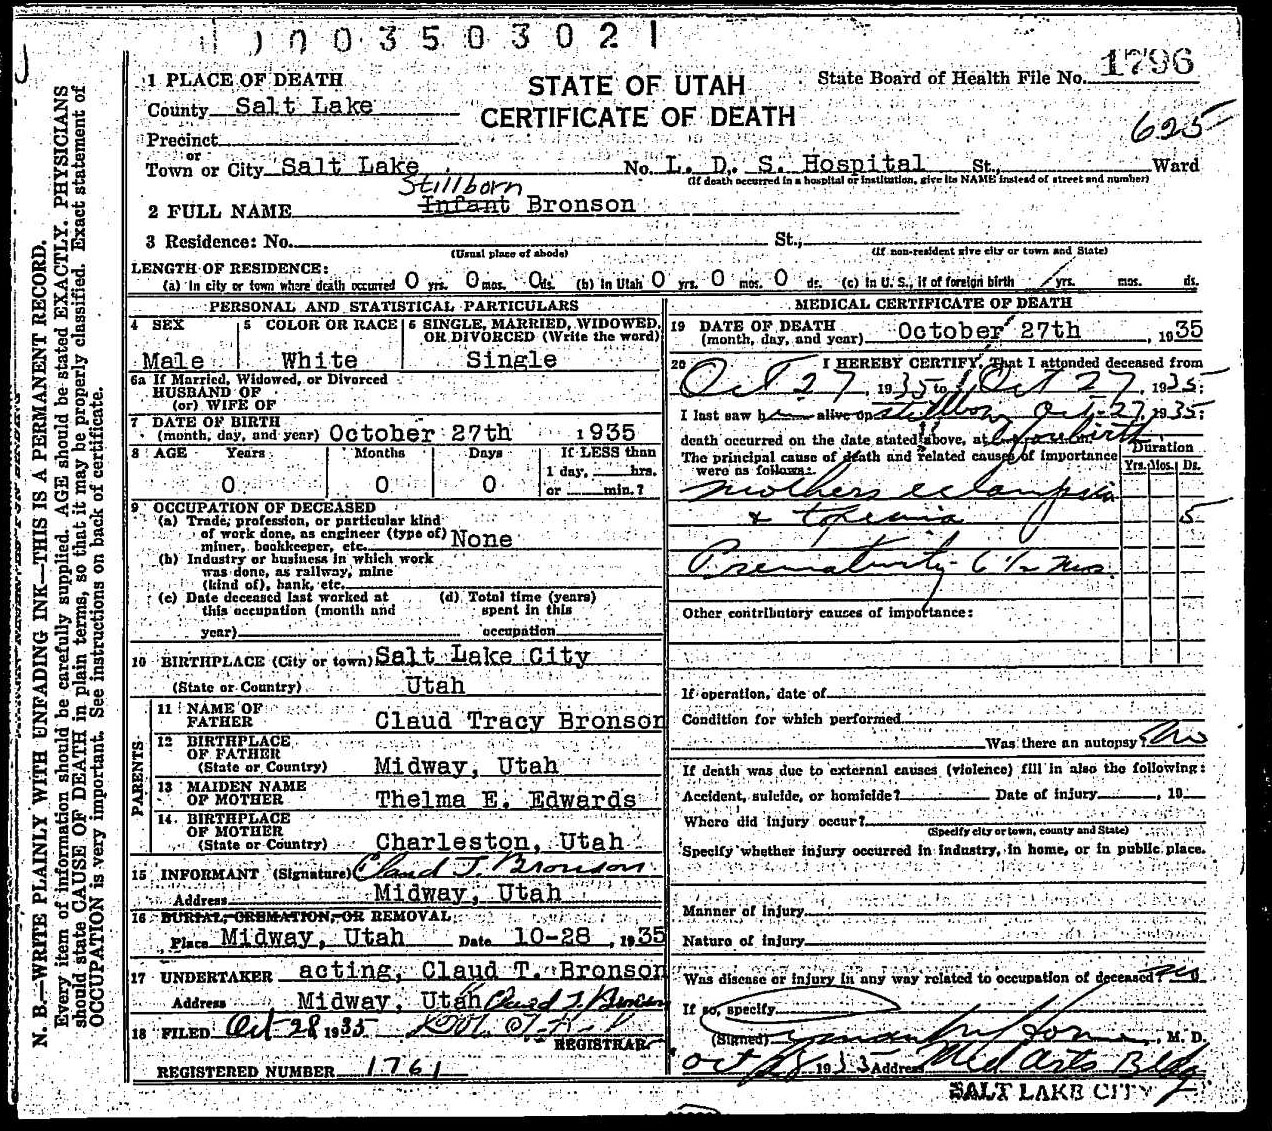 1003503021
1 PLACE OF DEATH
County Salt Lake
STATE OF UTAH
CERTIFICATE OF DEATH
State Board of Health File No. 1796
625
Precinct
or
Town or City Salt Lake No. L. D. S. Hospital St., Ward
(If death occurred in a hospital or institution, give its NAME instead of street and number)
Stillborn
2 FULL NAME Infant Bronson
3 Residence: No. St.,
(Usual place of abode) (If non-resident give city or town and State)
LENGTH OF RESIDENCE:
(a) In city or town where death occurred 0 yrs. 0 mos. 0 ds. (b) In Utah 0 yrs. 0 mos. 0 ds. (c) In U. S., if of foreign birth yrs. mos. ds.
PERSONAL AND STATISTICAL PARTICULARS
4 SEX
Male
5 COLOR OR RACE
White
6 SINGLE, MARRIED, WIDOWED,
OR DIVORCED (Write the word)
Single
6a If Married, Widowed, or Divorced
HUSBAND OF
(or) WIFE OF
7 DATE OF BIRTH
(month, day, and year) October 27th 1935
8 AGE Years Months Days If LESS than
1 day, hrs.
0 0 0 or min.?
9 OCCUPATION OF DECEASED
(a) Trade, profession, or particular kind
of work done, as engineer (type of)
miner, bookkeeper, etc. None
(b) Industry or business in which work
was done, as railway, mine
(kind of), bank, etc.
(c) Date deceased last worked at
this occupation (month and
year)
(d) Total time (years)
spent in this
occupation
10 BIRTHPLACE (City or town) Salt Lake City
(State or Country) Utah
PARENTS
11 NAME OF
FATHER Claud Tracy Bronson
12 BIRTHPLACE
OF FATHER
(State or Country) Midway, Utah
13 MAIDEN NAME
OF MOTHER Thelma E. Edwards
14 BIRTHPLACE
OF MOTHER
(State or Country) Charleston, Utah
15 INFORMANT (Signature) Claud T. Bronson
Address Midway, Utah
16 BURIAL, CREMATION, OR REMOVAL
Place Midway, Utah Date 10-28, 1935
17 UNDERTAKER acting, Claud T. Bronson
Address Midway, Utah Claud T. Bronson
18 FILED Oct 28 1935
REGISTRAR
REGISTERED NUMBER 1761
MEDICAL CERTIFICATE OF DEATH
19 DATE OF DEATH
(month, day, and year) October 27th, 1935
20 I HEREBY CERTIFY, That I attended deceased from
Oct 27, 1935 to Oct 27, 1935;
I last saw h alive on stillborn Oct-27, 1935;
death occurred on the date stated above, at
The principal cause of death and related causes of importance
were as follows:
Duration
Yrs. Mos. Ds.
mothers eclampsia
& toxemia 5
Prematurity - 6 1/2 mos.
Other contributory causes of importance:
If operation, date of
Condition for which performed
Was there an autopsy? No
If death was due to external causes (violence) fill in also the following:
Accident, suicide, or homicide? Date of injury, 19
Where did injury occur?
(Specify city or town, county and State)
Specify whether injury occurred in industry, in home, or in public place.
Manner of injury
Nature of injury
Was disease or injury in any way related to occupation of deceased? no
If so, specify
(Signed) M. D.
Oct 28 1935 Address Med Arts Bldg
SALT LAKE CITY
N. B.—WRITE PLAINLY WITH UNFADING INK—THIS IS A PERMANENT RECORD.
Every item of information should be carefully supplied. AGE should be stated EXACTLY. PHYSICIANS
should state CAUSE OF DEATH in plain terms, so that it may be properly classified. Exact statement of
OCCUPATION is very important. See instructions on back of certificate.